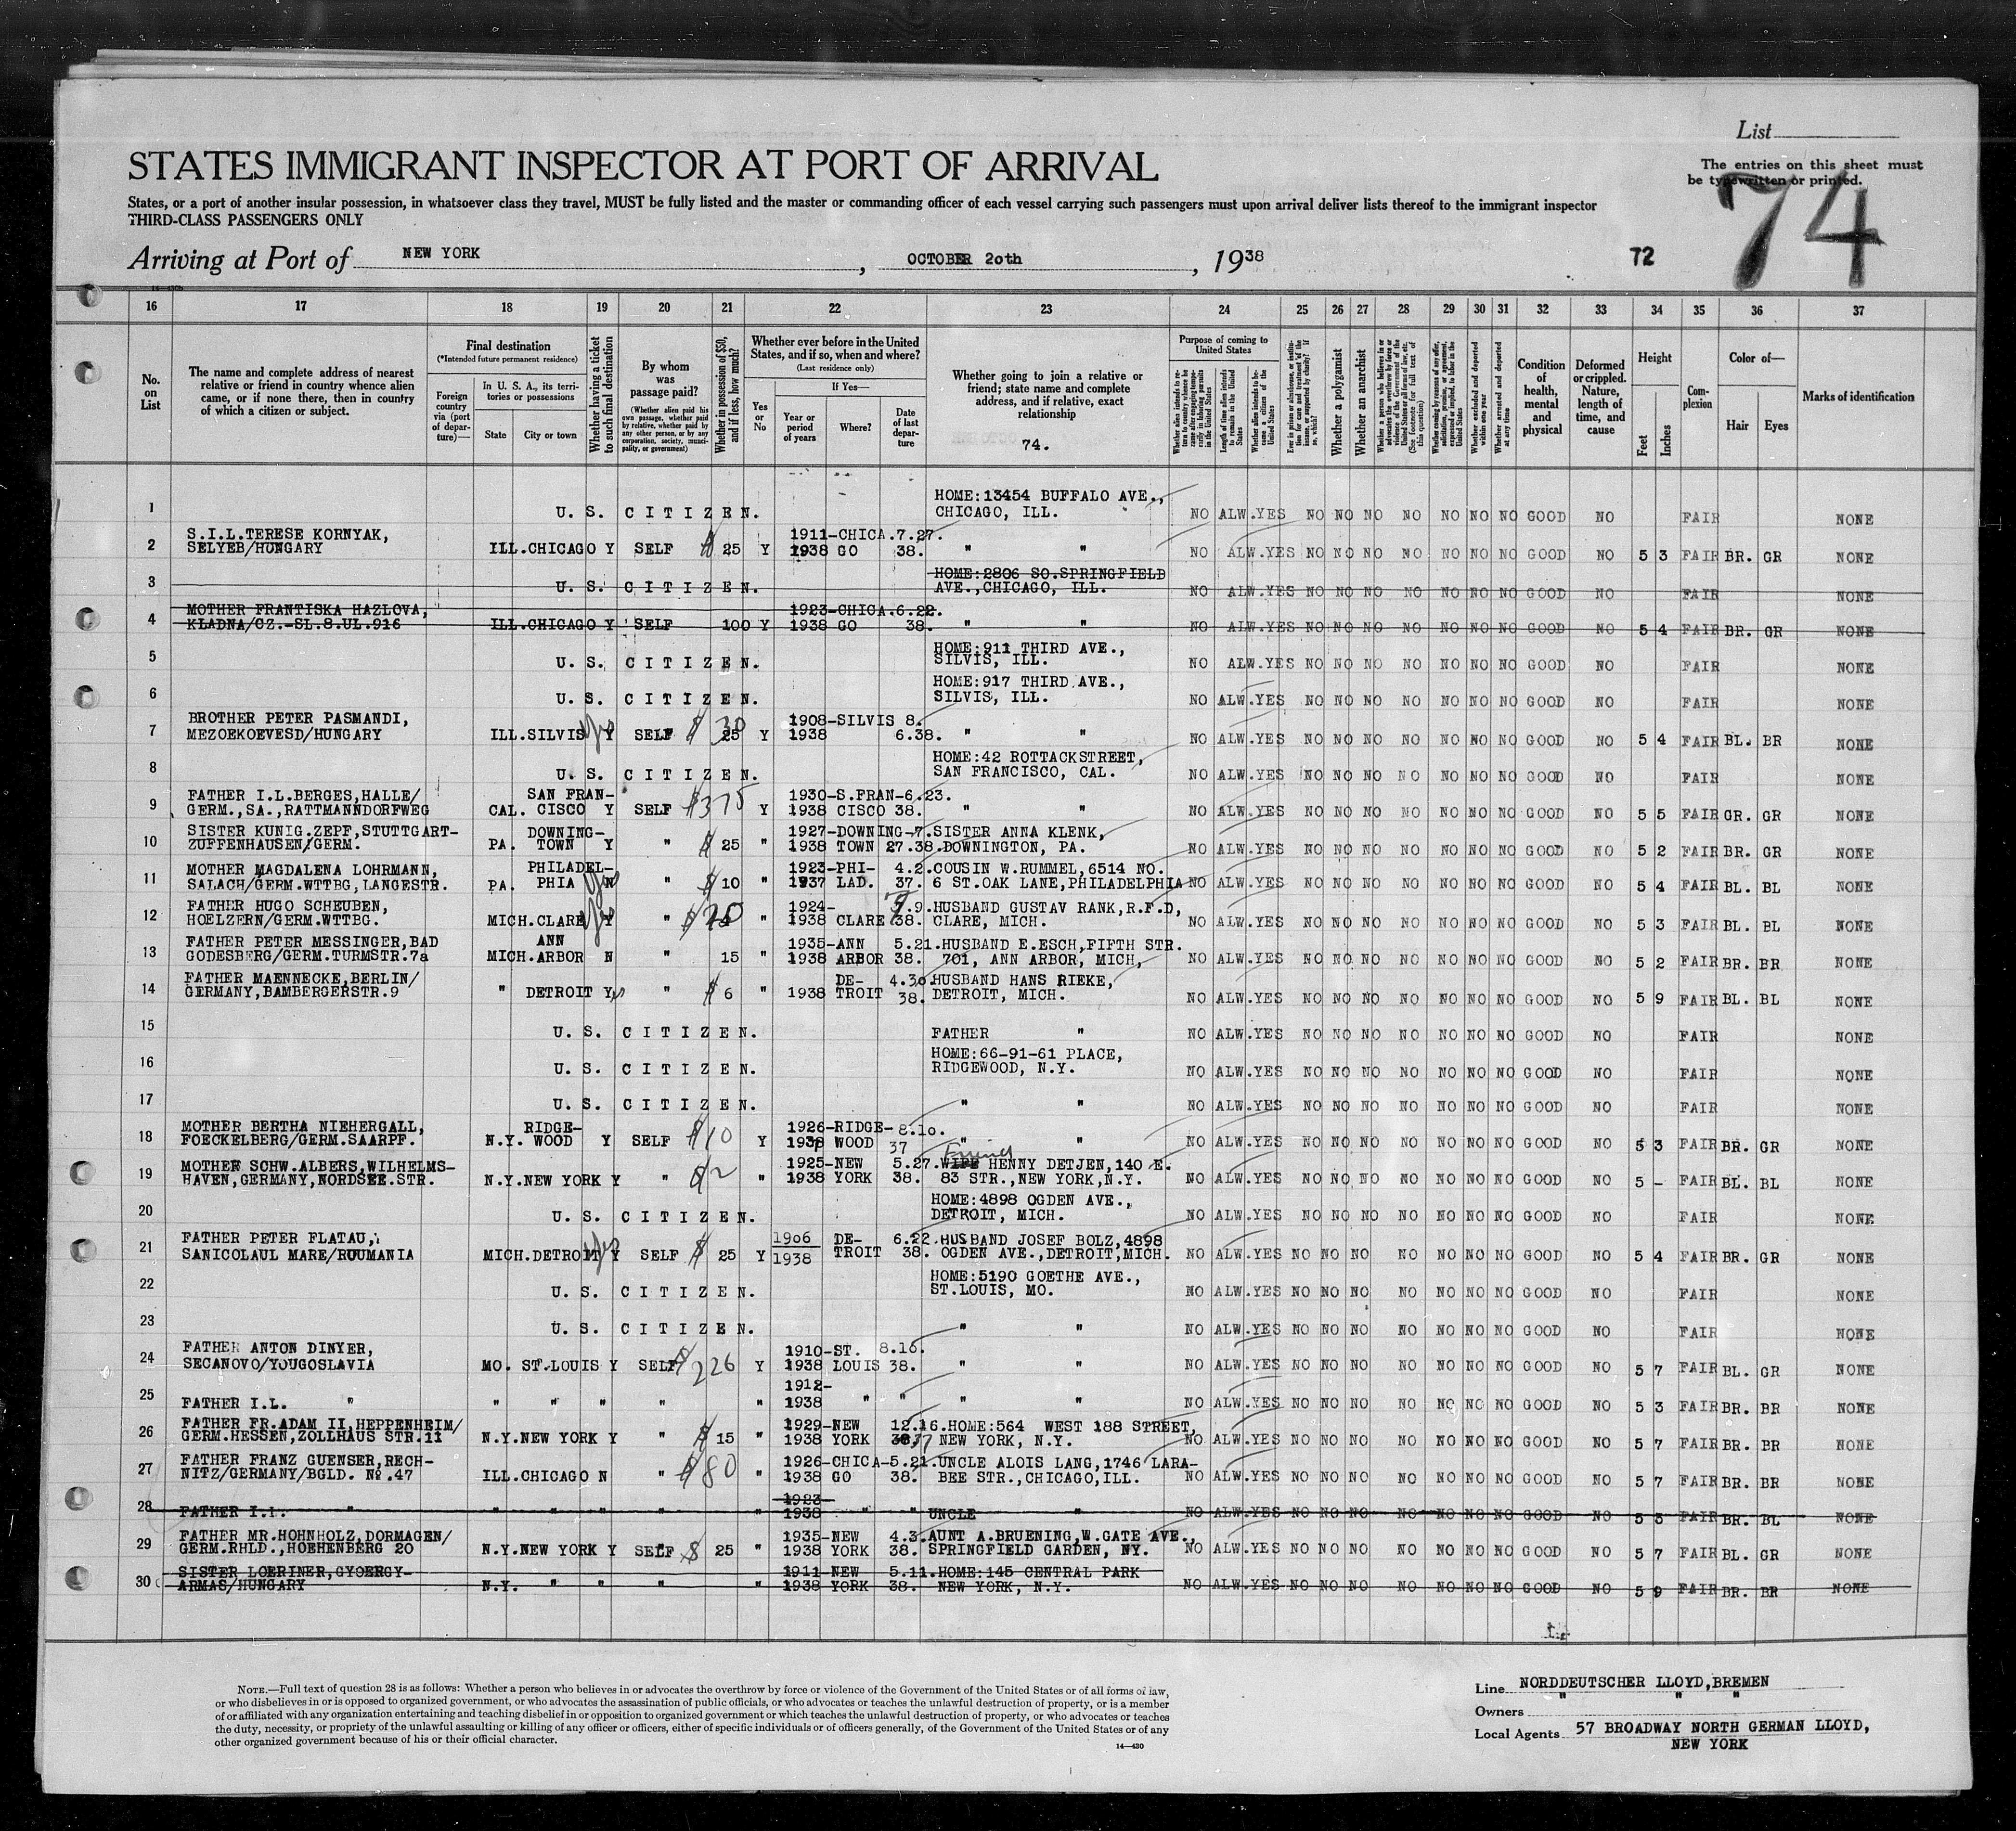 List
STATES IMMIGRANT INSPECTOR AT PORT OF ARRIVAL
The entries on this sheet must
be typewritten or printed.
74
States, or a port of another insular possession, in whatsoever class they travel, MUST be fully listed and the master or commanding officer of each vessel carrying such passengers must upon arrival deliver lists thereof to the immigrant inspector
THIRD-CLASS PASSENGERS ONLY
Arriving at Port of NEW YORK, OCTOBER 20th, 1938 72
16 17 18 19 20 21 22 23 24 25 26 27 28 29 30 31 32 33 34 35 36 37
No. on List
The name and complete address of nearest
relative or friend in country whence alien
came, or if none there, then in country
of which a citizen or subject.
Final destination
(*Intended future permanent residence)
Foreign country via (port of departure)—
In U. S. A., its territories or possessions
State City or town
Whether having a ticket to such final destination
By whom was passage paid?
(Whether alien paid his own passage, whether paid by relative, whether paid by any other person, or by any corporation, society, municipality, or government)
Whether in possession of $50, and if less, how much?
Whether ever before in the United States, and if so, when and where?
(Last residence only)
Yes or No
If Yes—
Year or period of years
Where?
Date of last departure
Whether going to join a relative or
friend; state name and complete
address, and if relative, exact
relationship
74.
Purpose of coming to United States
Length of time alien intends to remain in the United States
Whether alien intends to become a citizen of the United States
Whether a polygamist
Whether an anarchist
Whether excluded and deported within one year
Whether arrested and deported at any time
Condition of health, mental and physical
Deformed or crippled. Nature, length of time, and cause
Height
Feet Inches
Complexion
Color of—
Hair Eyes
Marks of identification
1 U. S. CITIZEN. HOME:13454 BUFFALO AVE.,
CHICAGO, ILL. NO ALW.YES NO NO NO NO NO NO NO GOOD NO FAIR NONE
S.I.L.TERESE KORNYAK, 1911-CHICA.7.27.
2 SELYEB/HUNGARY ILL.CHICAGO Y SELF $ 25 Y 1938 GO 38. " " NO ALW.YES NO NO NO NO NO NO NO GOOD NO 5 3 FAIR BR. GR NONE
3 U. S. CITIZEN. HOME:2806 SO.SPRINGFIELD
AVE.,CHICAGO, ILL. NO ALW.YES NO NO NO NO NO NO NO GOOD NO FAIR NONE
MOTHER FRANTISKA HAZLOVA, 1923-CHICA.6.22.
4 KLADNA/CZ.-SL.8.UL.916 ILL.CHICAGO Y SELF 100 Y 1938 GO 38. " " NO ALW.YES NO NO NO NO NO NO NO GOOD NO 5 4 FAIR BR. GR NONE
5 U. S. CITIZEN. HOME:911 THIRD AVE.,
SILVIS, ILL. NO ALW.YES NO NO NO NO NO NO NO GOOD NO FAIR NONE
6 U. S. CITIZEN. HOME:917 THIRD AVE.,
SILVIS, ILL. NO ALW.YES NO NO NO NO NO NO NO GOOD NO FAIR NONE
BROTHER PETER PASMANDI, 30 1908-SILVIS 8.
7 MEZOEKOEVESD/HUNGARY ILL.SILVIS yes Y SELF $ 25 Y 1938 6.38. " " NO ALW.YES NO NO NO NO NO NO NO GOOD NO 5 4 FAIR BL. BR NONE
8 U. S. CITIZEN. HOME:42 ROTTACKSTREET,
SAN FRANCISCO, CAL. NO ALW.YES NO NO NO NO NO NO NO GOOD NO FAIR NONE
FATHER I.L.BERGES,HALLE/ SAN FRAN- 1930-S.FRAN-6.23.
9 GERM.,SA.,RATTMANNDORFWEG CAL. CISCO Y SELF $375 Y 1938 CISCO 38. " " NO ALW.YES NO NO NO NO NO NO NO GOOD NO 5 5 FAIR GR. GR NONE
SISTER KUNIG.ZEPF,STUTTGART- DOWNING- 1927-DOWNING-7.SISTER ANNA KLENK,
10 ZUFFENHAUSEN/GERM. PA. TOWN Y " $ 25 " 1938 TOWN 27.38.DOWNINGTON, PA. NO ALW.YES NO NO NO NO NO NO NO GOOD NO 5 2 FAIR BR. GR NONE
MOTHER MAGDALENA LOHRMANN, PHILADEL- 1923-PHI- 4.2.COUSIN W.RUMMEL,6514 NO.
11 SALACH/GERM.WTTBG,LANGESTR. PA. PHIA yes N " $ 10 " 1937 LAD. 37. 6 ST.OAK LANE,PHILADELPHIA NO ALW.YES NO NO NO NO NO NO NO GOOD NO 5 4 FAIR BL. BL NONE
FATHER HUGO SCHEUBEN, 1924- 7.9.HUSBAND GUSTAV RANK,R.F.D,
12 HOELZERN/GERM.WTTBG. MICH.CLARE yes Y " $20 " 1938 CLARE 38. CLARE, MICH. NO ALW.YES NO NO NO NO NO NO NO GOOD NO 5 3 FAIR BL. BL NONE
FATHER PETER MESSINGER,BAD ANN 1935-ANN 5.21.HUSBAND E.ESCH,FIFTH STR.
13 GODESBERG/GERM.TURMSTR.7a MICH.ARBOR N " 15 " 1938 ARBOR 38. 701, ANN ARBOR, MICH, NO ALW.YES NO NO NO NO NO NO NO GOOD NO 5 2 FAIR BR. BR NONE
FATHER MAENNECKE,BERLIN/ DE- 4.30.HUSBAND HANS RIEKE,
14 GERMANY,BAMBERGERSTR.9 " DETROIT Y " $ 6 " 1938 TROIT 38. DETROIT, MICH. NO ALW.YES NO NO NO NO NO NO NO GOOD NO 5 9 FAIR BL. BL NONE
15 U. S. CITIZEN. FATHER " NO ALW.YES NO NO NO NO NO NO NO GOOD NO FAIR NONE
16 U. S. CITIZEN. HOME:66-91-61 PLACE,
RIDGEWOOD, N.Y. NO ALW.YES NO NO NO NO NO NO NO GOOD NO FAIR NONE
17 U. S. CITIZEN. " " NO ALW.YES NO NO NO NO NO NO NO GOOD NO FAIR NONE
MOTHER BERTHA NIEHERGALL, RIDGE- 1926-RIDGE-8.10.
18 FOECKELBERG/GERM.SAARPF. N.Y. WOOD Y SELF $10 Y 1937 WOOD 37 " " NO ALW.YES NO NO NO NO NO NO NO GOOD NO 5 3 FAIR BR. GR NONE
Friend
MOTHER SCHW.ALBERS,WILHELMS- 1925-NEW 5.27.WIFE HENNY DETJEN,140 E.
19 HAVEN,GERMANY,NORDSEE.STR. N.Y.NEW YORK Y " 2 " 1938 YORK 38. 83 STR.,NEW YORK,N.Y. NO ALW.YES NO NO NO NO NO NO NO GOOD NO 5 - FAIR BL. BL NONE
20 U. S. CITIZEN. HOME:4898 OGDEN AVE.,
DETROIT, MICH. NO ALW.YES NO NO NO NO NO NO NO GOOD NO FAIR NONE
FATHER PETER FLATAU, 1906 DE- 6.22.HUSBAND JOSEF BOLZ,4898
21 SANICOLAUL MARE/ROUMANIA MICH.DETROIT yes Y SELF $ 25 Y 1938 TROIT 38. OGDEN AVE.,DETROIT,MICH. NO ALW.YES NO NO NO NO NO NO NO GOOD NO 5 4 FAIR BR. GR NONE
22 U. S. CITIZEN. HOME:5190 GOETHE AVE.,
ST.LOUIS, MO. NO ALW.YES NO NO NO NO NO NO NO GOOD NO FAIR NONE
23 U. S. CITIZEN. " " NO ALW.YES NO NO NO NO NO NO NO GOOD NO FAIR NONE
FATHER ANTON DINYER, 1910-ST. 8.16.
24 SECANOVO/YOUGOSLAVIA MO. ST.LOUIS Y SELF $226 Y 1938 LOUIS 38. " " NO ALW.YES NO NO NO NO NO NO NO GOOD NO 5 7 FAIR BL. GR NONE
1912-
25 FATHER I.L. " " " " " " 1938 " " " " NO ALW.YES NO NO NO NO NO NO NO GOOD NO 5 3 FAIR BR. BR NONE
FATHER FR.ADAM II,HEPPENHEIM/ 1929-NEW 12.16.HOME:564 WEST 188 STREET,
26 GERM.HESSEN,ZOLLHAUS STR.11 N.Y.NEW YORK Y " $ 15 " 1938 YORK 37 NEW YORK, N.Y. NO ALW.YES NO NO NO NO NO NO NO GOOD NO 5 7 FAIR BR. BR NONE
FATHER FRANZ GUENSER,RECH- 1926-CHICA-5.21.UNCLE ALOIS LANG,1746 LARA-
27 NITZ/GERMANY/BGLD. No.47 ILL.CHICAGO N " $80 " 1938 GO 38. BEE STR.,CHICAGO,ILL. NO ALW.YES NO NO NO NO NO NO NO GOOD NO 5 7 FAIR BR. BR NONE
1923-
28 FATHER I.I. " " " " " " 1938 " " UNCLE " NO ALW.YES NO NO NO NO NO NO NO GOOD NO 5 3 FAIR BR. BL NONE
FATHER MR.HOHNHOLZ,DORMAGEN/ 1935-NEW 4.3.AUNT A.BRUENING,W.GATE AVE.,
29 GERM.RHLD.,HOEHENBERG 20 N.Y.NEW YORK Y SELF $ 25 " 1938 YORK 38. SPRINGFIELD GARDEN, NY. NO ALW.YES NO NO NO NO NO NO NO GOOD NO 5 7 FAIR BL. GR NONE
SISTER LOERINER,GYOERGY- 1911-NEW 5.11.HOME:145 CENTRAL PARK
30 ARMAS/HUNGARY N.Y. " " " " 1938 YORK 38. NEW YORK, N.Y. NO ALW.YES NO NO NO NO NO NO NO GOOD NO 5 9 FAIR BR. BR NONE
NOTE.—Full text of question 28 is as follows: Whether a person who believes in or advocates the overthrow by force or violence of the Government of the United States or of all forms of law,
or who disbelieves in or is opposed to organized government, or who advocates the assassination of public officials, or who advocates or teaches the unlawful destruction of property, or is a member
of or affiliated with any organization entertaining and teaching disbelief in or opposition to organized government or which teaches the unlawful destruction of property, or who advocates or teaches
the duty, necessity, or propriety of the unlawful assaulting or killing of any officer or officers, either of specific individuals or of officers generally, of the Government of the United States or of any
other organized government because of his or their official character.
14—430
Line NORDDEUTSCHER LLOYD,BREMEN
Owners " " "
Local Agents 57 BROADWAY NORTH GERMAN LLOYD,
NEW YORK